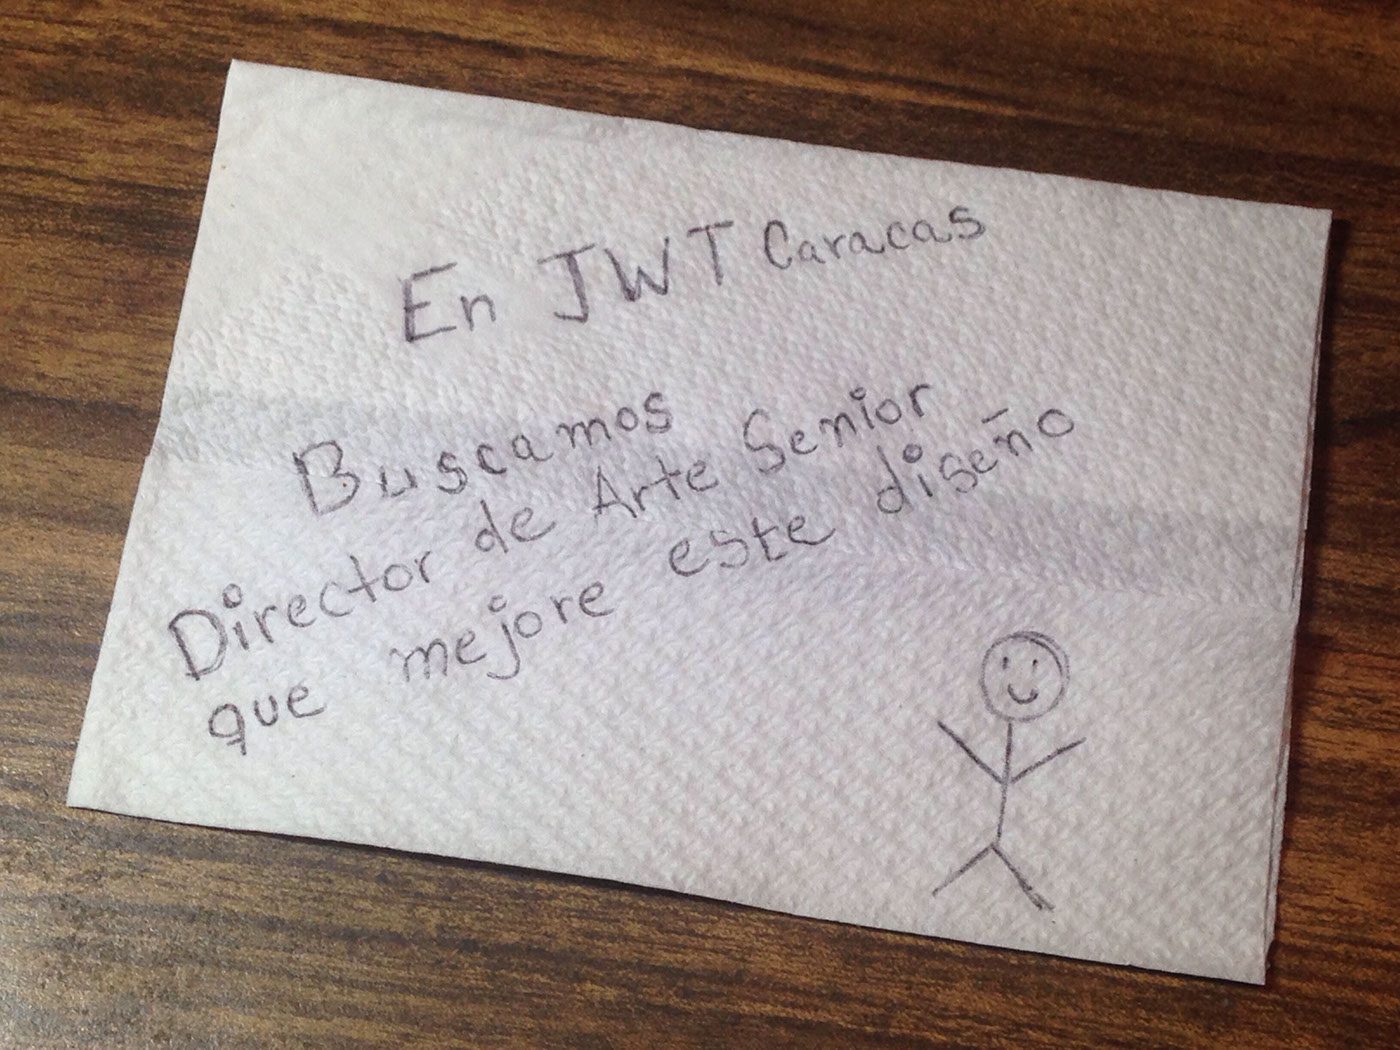 En JWT Caracas
Buscamos
Director de Arte Senior
que mejore este diseño